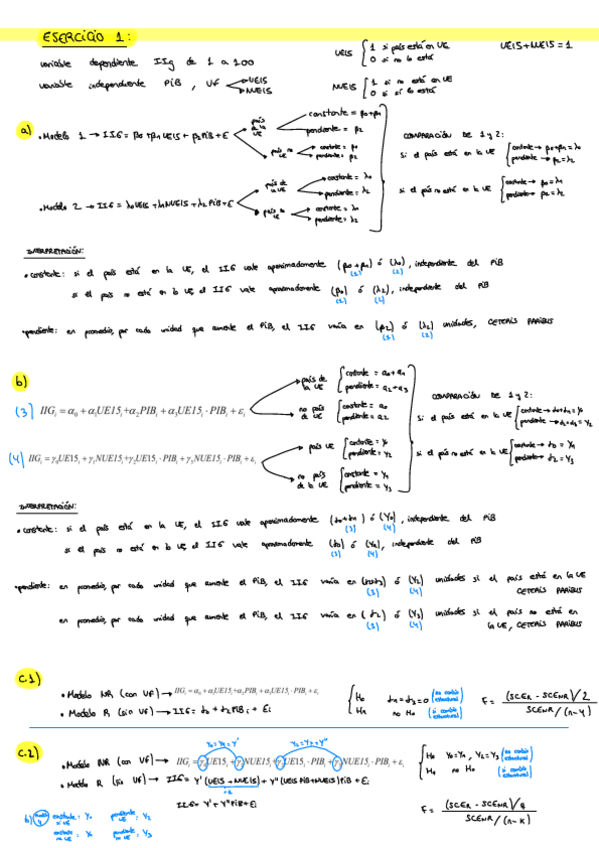 EJERCICIO 1:
variable dependiente IIg de 1 a 100
variable independiente PiB, UE UE15 NUE15
UE15 { 1 si país está en UE
0 si no lo está
UE15+NUE15=1
NUE15 { 1 si no está en UE
0 si sí está
a)
• Modelo 1 → IIG = β0+β1UE15+β2PiB+ε
país de la UE constante = β0+β1
pendiente = β2
país no UE constante = β0
pendiente = β2
• Modelo 2 → IIG = λ0UE15+λ1NUE15+λ2PiB+ε
país de la UE constante = λ0
pendiente = λ2
país no UE constante = λ1
pendiente = λ2
COMPARACIÓN DE 1 y 2:
si el país está en la UE { constante → β0+β1=λ0
pendiente → β2=λ2
si el país no está en la UE { constante → β0=λ1
pendiente → β2=λ2
INTERPRETACIÓN:
• constante: si el país está en la UE, el IIG vale aproximadamente (β0+β1) ó (λ0), independiente del PiB
(1) (2)
si el país no está en la UE el IIG vale aproximadamente (β0) ó (λ1), independiente del PiB
(1) (2)
• pendiente: en promedio, por cada unidad que aumente el PiB, el IIG varía en (β2) ó (λ2) unidades, CETERIS PARIBUS
(1) (2)
b)
(3) IIGi = α0 + α1UE15i + α2PIBi + α3UE15i · PIBi + εi
país de la UE { constante = α0+α1
pendiente = α2+α3
no país de UE { constante = α0
pendiente = α2
(4) IIGi = γ0UE15i + γ1NUE15i + γ2UE15i · PIBi + γ3NUE15i · PIBi + εi
país UE { constante = γ0
pendiente = γ2
no país de la UE { constante = γ1
pendiente = γ3
COMPARACIÓN DE 1 y 2:
si el país está en la UE { constante → α0+α1=γ0
pendiente → α2+α3=γ2
si el país no está en la UE { constante → α0=γ1
pendiente → α2=γ3
INTERPRETACIÓN:
• constante: si el país está en la UE, el IIG vale aproximadamente (α0+α1) ó (γ0), independiente del PiB
(3) (4)
si el país no está en la UE el IIG vale aproximadamente (α0) ó (γ1), independiente del PiB
(3) (4)
• pendiente: en promedio, por cada unidad que aumente el PiB, el IIG varía en (α2+α3) ó (γ2) unidades si el país está en la UE
(3) (4) CETERIS PARIBUS
en promedio, por cada unidad que aumente el PiB, el IIG varía en (α2) ó (γ3) unidades si el país no está en
(3) (4) la UE, CETERIS PARIBUS
C.1)
• Modelo NR (con UE) → IIGi = α0 + α1UE15i + α2PIBi + α3UE15i · PIBi + εi
• Modelo R (sin UE) → IIG = α0 + α2PiBi + εi
{ H0 α1=α3=0 (no cambio estructural)
H1 no H0 (si cambio estructural)
F = (SCER - SCENR)/2
SCENR/(n-4)
C.2)
γ0=γ1=γ' γ2=γ3=γ''
• Modelo NR (con UE) → IIGi = γ0UE15i + γ1NUE15i + γ2UE15i · PIBi + γ3NUE15i · PIBi + εi
• Modelo R (sin UE) → IIG = γ'(UE15+NUE15) + γ''(UE15 PiB+NUE15)PiB + εi
IIG = γ'+γ''PiB+εi
{ H0 γ0=γ1, γ2=γ3 (no cambio estructural)
H1 no H0 (si cambio estructural)
F = (SCER - SCENR)/q
SCENR/(n-K)